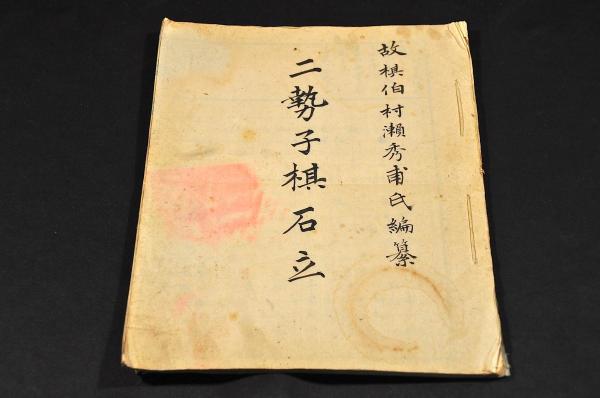 故棋伯村瀬秀甫氏編纂
二勢子棋石立